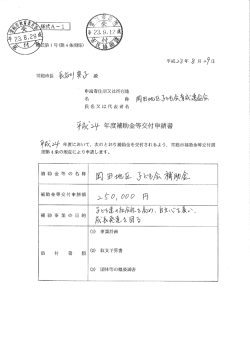 様式A-1
23.8.29
23.8.17
様式第1号(第4条関係)
平成23年8月29日
常総市長 長谷川 典子 殿
申請者住所又は所在地
名称 岡田地区子ども会育成連合会
氏名又は代表者名
平成24年度補助金等交付申請書
平成24年度において、次のとおり補助金等を交付されるよう、常総市補助金等交付規則第4条の規定により申請します。
補助金等の名称 岡田地区子ども会補助金
補助金等交付申請額 250,000円
補助事業の目的 子ども達の社会性を高め、自主心を養い、
成長発達を図る
添付書類
(1) 事業計画
(2) 収支予算書
(3) 団体等の概要調書